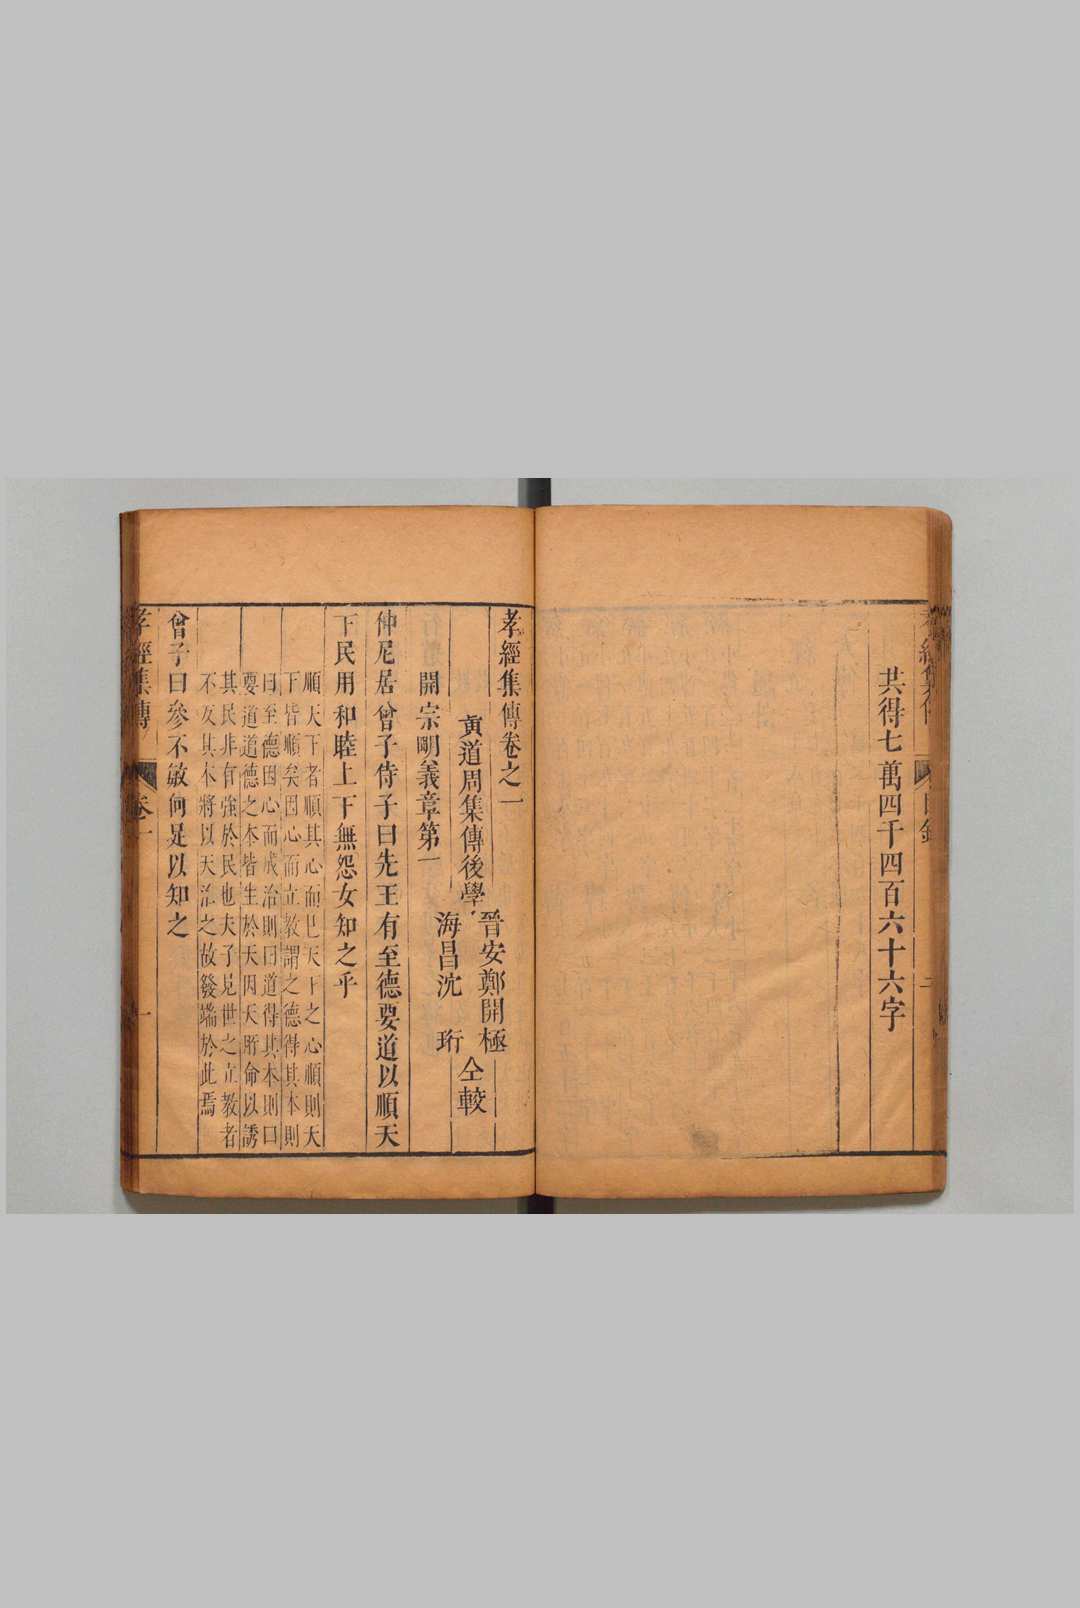 共得七萬四千四百六十六字
孝經集傳卷之一
黃道周集傳後學
晉安鄭開極
海昌沈珩
仝較
開宗明義章第一
仲尼居曾子侍子曰先王有至德要道以順天
下民用和睦上下無怨女知之乎
順天下者順其心而已天下之心順則天
下皆順矣因心而立教謂之德得其本則
曰至德因心而成治則曰道得其本則曰
要道道德之本皆生於天因天所命以誘
其民非有強於民也夫子見世之立教者
不反其本將以天治之故發端於此焉
曾子曰參不敏何足以知之
孝經集傳
卷一
一